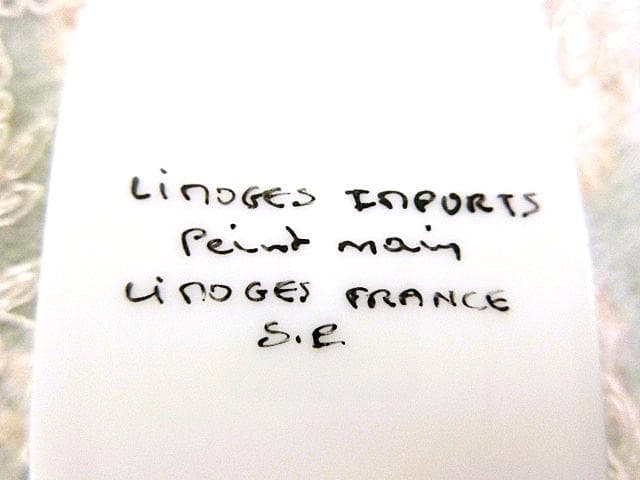 LiMOGES IMPORTS
Peint main
LiMOGES FRANCE
S.R